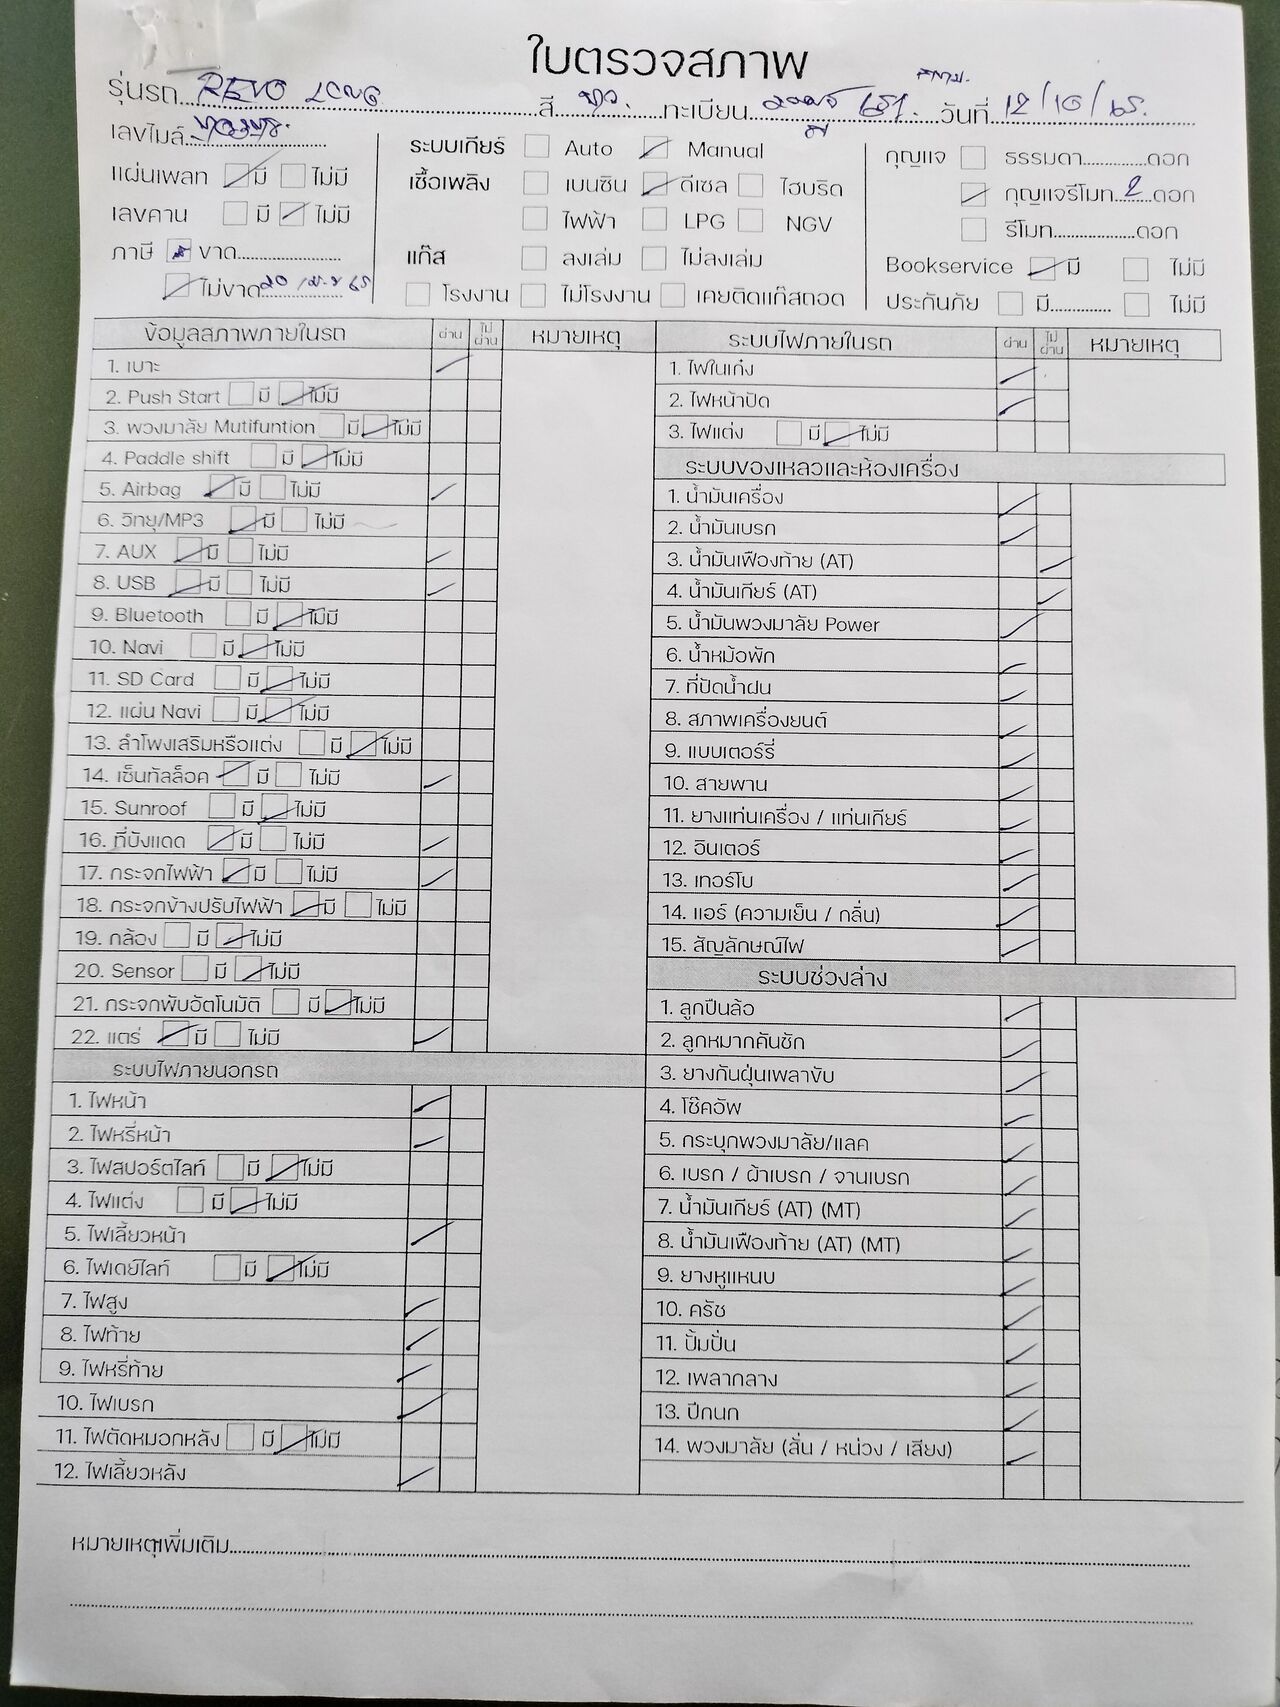 ใบตรวจสภาพ
รุ่นรถ REVO LONG สี ขาว. ทะเบียน วันที่ 12/10/65.
เลขไมล์
แผ่นเพลท มี ไม่มี
เลขคาน มี ไม่มี
ภาษี ขาด
ไม่ขาด
ระบบเกียร์ Auto Manual
เชื้อเพลิง เบนซิน ดีเซล ไฮบริด
ไฟฟ้า LPG NGV
แก๊ส ลงเล่ม ไม่ลงเล่ม
โรงงาน ไม่โรงงาน เคยติดแก๊สถอด
กุญแจ ธรรมดา ดอก
กุญแจรีโมท 2 ดอก
รีโมท ดอก
Bookservice มี ไม่มี
ประกันภัย มี ไม่มี
ข้อมูลสภาพภายในรถ ผ่าน ไม่ผ่าน หมายเหตุ
1. เบาะ
2. Push Start มี ไม่มี
3. พวงมาลัย Mutifuntion มี ไม่มี
4. Paddle shift มี ไม่มี
5. Airbag มี ไม่มี
6. วิทยุ/MP3 มี ไม่มี
7. AUX มี ไม่มี
8. USB มี ไม่มี
9. Bluetooth มี ไม่มี
10. Navi มี ไม่มี
11. SD Card มี ไม่มี
12. แผ่น Navi มี ไม่มี
13. ลำโพงเสริมหรือแต่ง มี ไม่มี
14. เซ็นทัลล็อค มี ไม่มี
15. Sunroof มี ไม่มี
16. ที่บังแดด มี ไม่มี
17. กระจกไฟฟ้า มี ไม่มี
18. กระจกข้างปรับไฟฟ้า มี ไม่มี
19. กล้อง มี ไม่มี
20. Sensor มี ไม่มี
21. กระจกพับอัตโนมัติ มี ไม่มี
22. แตร่ มี ไม่มี
ระบบไฟภายนอกรถ
1. ไฟหน้า
2. ไฟหรี่หน้า
3. ไฟสปอร์ตไลท์ มี ไม่มี
4. ไฟแต่ง มี ไม่มี
5. ไฟเลี้ยวหน้า
6. ไฟเดย์ไลท์ มี ไม่มี
7. ไฟสูง
8. ไฟท้าย
9. ไฟหรี่ท้าย
10. ไฟเบรก
11. ไฟตัดหมอกหลัง มี ไม่มี
12. ไฟเลี้ยวหลัง
ระบบไฟภายในรถ ผ่าน ไม่ผ่าน หมายเหตุ
1. ไฟในเก๋ง
2. ไฟหน้าปัด
3. ไฟแต่ง มี ไม่มี
ระบบของเหลวและห้องเครื่อง
1. น้ำมันเครื่อง
2. น้ำมันเบรก
3. น้ำมันเฟืองท้าย (AT)
4. น้ำมันเกียร์ (AT)
5. น้ำมันพวงมาลัย Power
6. น้ำหม้อพัก
7. ที่ปัดน้ำฝน
8. สภาพเครื่องยนต์
9. แบบเตอร์รี่
10. สายพาน
11. ยางแท่นเครื่อง / แท่นเกียร์
12. อินเตอร์
13. เทอร์โบ
14. แอร์ (ความเย็น / กลิ่น)
15. สัญลักษณ์ไฟ
ระบบช่วงล่าง
1. ลูกปืนล้อ
2. ลูกหมากคันชัก
3. ยางกันฝุ่นเพลาขับ
4. โช๊คอัพ
5. กระบุกพวงมาลัย/แลค
6. เบรก / ผ้าเบรก / จานเบรก
7. น้ำมันเกียร์ (AT) (MT)
8. น้ำมันเฟืองท้าย (AT) (MT)
9. ยางหูแหนบ
10. ครัช
11. ปั้มปั่น
12. เพลากลาง
13. ปีกนก
14. พวงมาลัย (ลั่น / หน่วง / เสียง)
หมายเหตุเพิ่มเติม